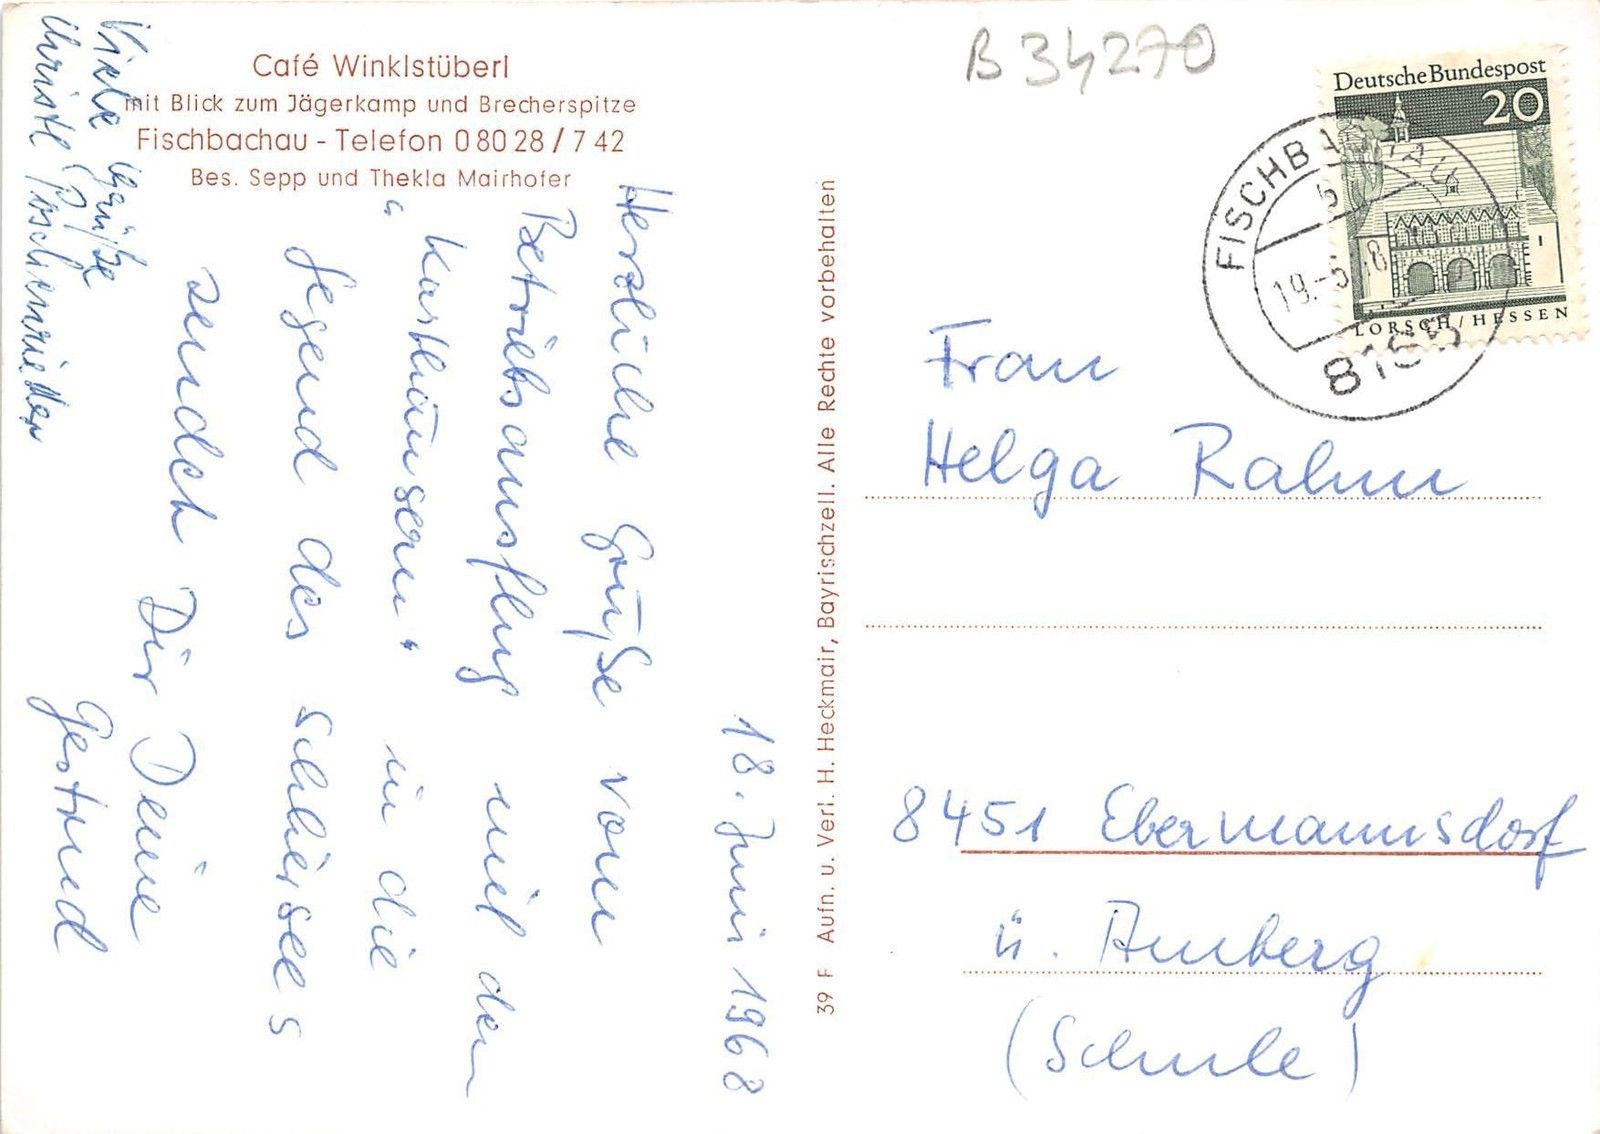 Café Winklstüberl
mit Blick zum Jägerkamp und Brecherspitze
Fischbachau - Telefon 0 80 28 / 7 42
Bes. Sepp und Thekla Mairhofer
18. Juni 1968
Herzliche Grüße vom
Betriebsausflug mit den
in die
Gegend des Schliersees
sendet Dir Deine
Gertrud
Viele Grüße
39 F Aufn. u. Verl. H. Heckmair, Bayrischzell. Alle Rechte vorbehalten
B 34270
Deutsche Bundespost
20
LORSCH/HESSEN
FISCHBACHAU
b
19.-6.
Frau
Helga Rahm
8451 Ebermannsdorf
ü. Amberg
(Schule)